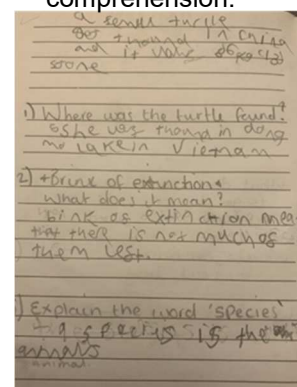 comprehension.
a senUs turtle
get thound in china
and it was
soone
1) Where was the turtle found?
She was thound in dong
mo lake in Vietnam
2) +brink of extinction.
What does it mean?
bink of extinction mea
that there is not much of
them lest.
) Explain the word 'species'
+ a species is the
animals
animal